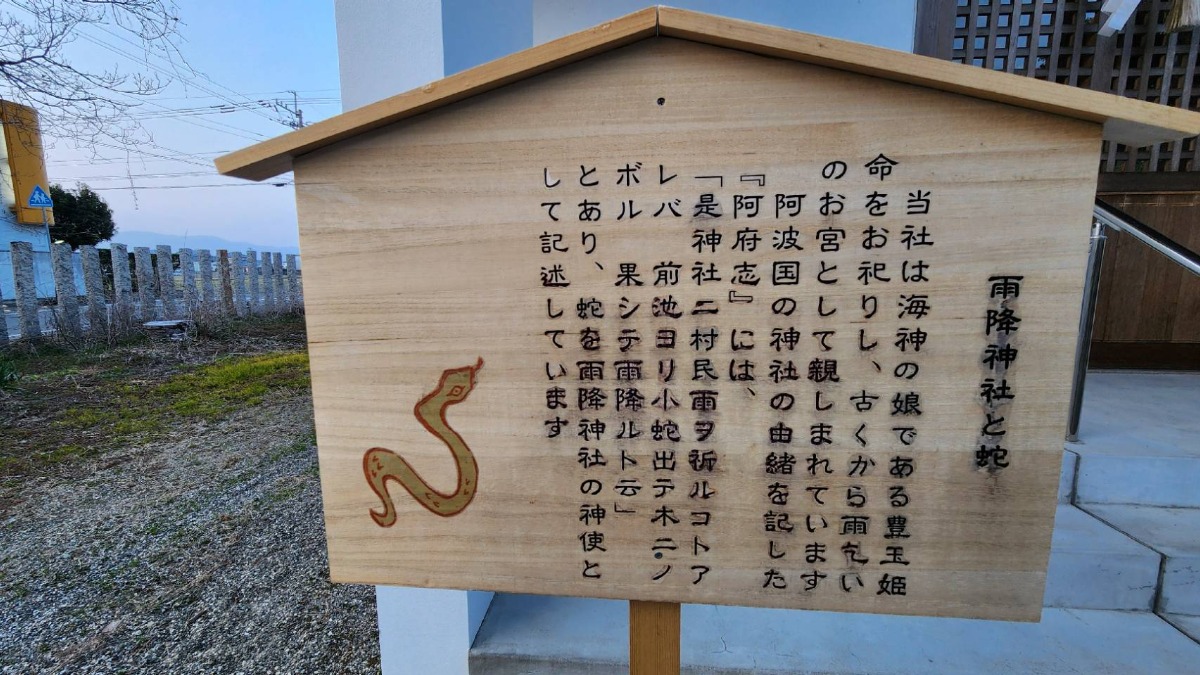 雨降神社と蛇
当社は海神の娘である豊玉姫
命をお祀りし、古くから雨乞い
のお宮として親しまれています
阿波国の神社の由緒を記した
『阿府志』には、
「是神社ニ村民雨ヲ祈ルコトア
レバ 前池ヨリ小蛇出テ木ニノ
ボル 果シテ雨降ルト云」
とあり、蛇を雨降神社の神使と
して記述しています